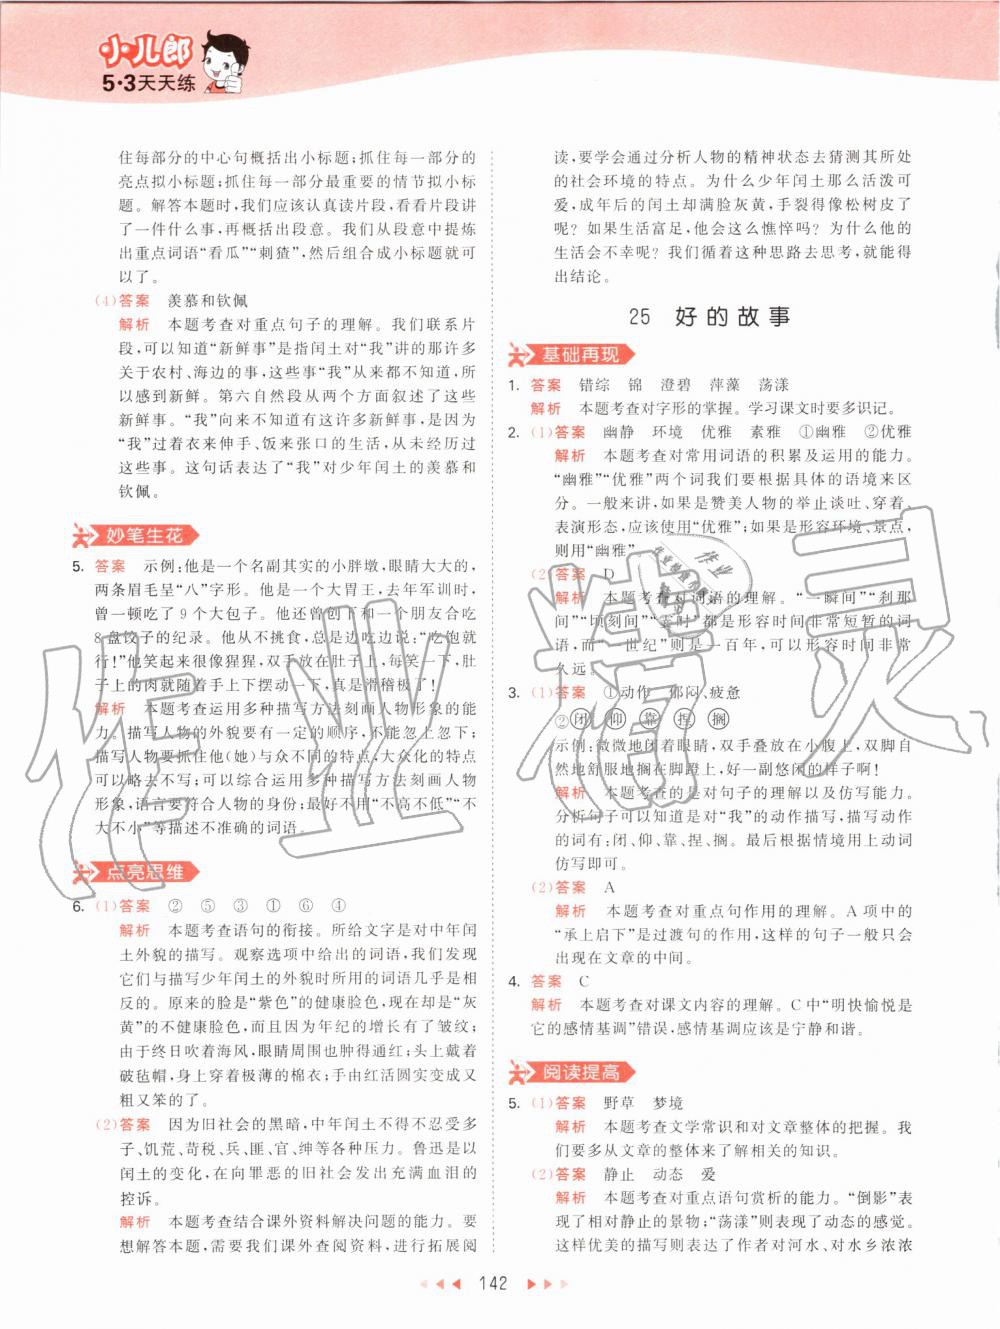 小儿郎
5·3天天练
住每部分的中心句概括出小标题;抓住每一部分的
亮点拟小标题;抓住每一部分最重要的情节拟小标
题。解答本题时,我们应该认真读片段,看看片段中
讲了一件什么事,再概括出段意。我们从段意中提炼
出重点词语“看瓜”“刺猹”,然后组合成小标题就可
以了。
(4)答案 羡慕和钦佩
解析 本题考查对重点句子的理解。我们联系片
段,可以知道“新鲜事”是指闰土对“我”讲的那许多
关于农村、海边的事,这些事“我”都不知道,所以感
到新鲜。第六自然段从两个方面叙述了这些
新鲜事。“我”向来不知道有这许多新鲜事,是因为
“我”过着衣来伸手、饭来张口的生活,从未经历过
这些事。这句话表达了“我”对少年闰土的羡慕和
钦佩。
妙笔生花
5. 答案 示例:他是一个名副其实的小胖墩,眼睛大大的,
两条眉毛呈“八”字形。他是一个大胃王,去年军训时,
曾一顿吃了9个大包子。他还曾创下和一个朋友合吃
8盘饺子的纪录。他从不挑食,总是边吃边说:“吃饱就
行!”他笑起来很像猩猩,双手放在肚子上,每笑一下,肚
子上的肉就随着手上下摆动一下,真是滑稽极了!
解析 本题考查运用多种描写方法刻画人物形象的能
力。描写人物外貌要有一定的顺序,不能忽上忽下;
描写人物要抓住他(她)与众不同的特点,大众化的特点
可以略去不写;可以综合运用多种描写方法刻画人物
形象,语言要符合人物的身份;最好不用“不高不低”“不
大不小”等描述不准确的词语。
点亮思维
6. (1)答案 ② ⑤ ③ ① ⑥ ④
解析 本题考查语句的衔接。所给文字是对中年闰
土外貌的描写。观察选项中给出的词语,我们发现
它们与描写少年闰土的外貌时所用的词语几乎是相
反的。原来的脸是“紫色”的健康脸色,现在却是“灰
黄”的不健康脸色,而且因为年纪的增长有了皱纹;
由于终日吹着海风,眼睛周围也肿得通红;头上戴着
破毡帽,身上穿着极薄的棉衣;手由红活圆实变成又
粗又笨的了。
(2)答案 因为旧社会的黑暗,中年闰土不得不忍受多
子、饥荒、苛税、兵、匪、官、绅等各种压力。鲁迅是以
闰土的变化,在向罪恶的旧社会发出充满血泪的
控诉。
解析 本题考查结合课外资料解决问题的能力。要
想解答本题,需要我们课外查阅资料,进行拓展阅
读,要学会通过分析人物的精神状态去猜测其所处
的社会环境的特点。为什么少年闰土那么活泼可
爱,成年后的闰土却满脸灰黄,手裂得像松树皮了
呢?如果生活富足,他会这么憔悴吗?为什么他的
生活会不幸呢?我们循着这种思路去思考,就能得
出结论。
25 好的故事
基础再现
1. 答案 错综 锦 澄碧 萍藻 荡漾
解析 本题考查对字形的掌握。学习课文时要多识记。
2. (1)答案 幽静 环境 优雅 素雅 ①幽雅 ②优雅
解析 本题考查对常用词语的积累及运用的能力。
“幽雅”“优雅”两个词我们要根据具体的语境来区
分。一般来讲,如果是赞美人物的举止谈吐、穿着、
表演形态,应该使用“优雅”;如果是形容环境、景点,
则用“幽雅”。
(2)答案 D
解析 本题考查对词语的理解。“一瞬间”“刹那
间”“顷刻间”“霎时”都是形容时间非常短暂的词
语,而“一世纪”则是一百年,可以形容时间非常
久远。
3. (1)答案 ①动作 郁闷、疲惫
②闭 仰 靠 捏 搁
示例:微微地闭着眼睛,双手叠放在小腹上,双脚自
然地舒服地搁在脚蹬上,好一副悠闲的样子啊!
解析 本题考查的是对句子的理解以及仿写能力。
分析句子可以知道是对“我”的动作描写,描写动作
的词有:闭、仰、靠、捏、搁。根据情境用上动词
仿写即可。
(2)答案 A
解析 本题考查对重点句作用的理解。A项中的
“承上启下”是过渡句的作用,这样的句子一般只会
出现在文章的中间。
4. 答案 C
解析 本题考查对课文内容的理解。C中“明快愉悦是
它的感情基调”错误,感情基调应该是宁静和谐。
阅读提高
5. (1)答案 野草 梦境
解析 本题考查文学常识和对文章整体的把握。我
们要多从文章的整体来了解相关的知识。
(2)答案 静止 动态 爱
解析 本题考查对重点语句赏析的能力。“倒影”表
现了相对静止的景物;“荡漾”则表现了动态的感觉。
这样优美的描写则表达了作者对河水、对水乡浓浓
142
作业精灵